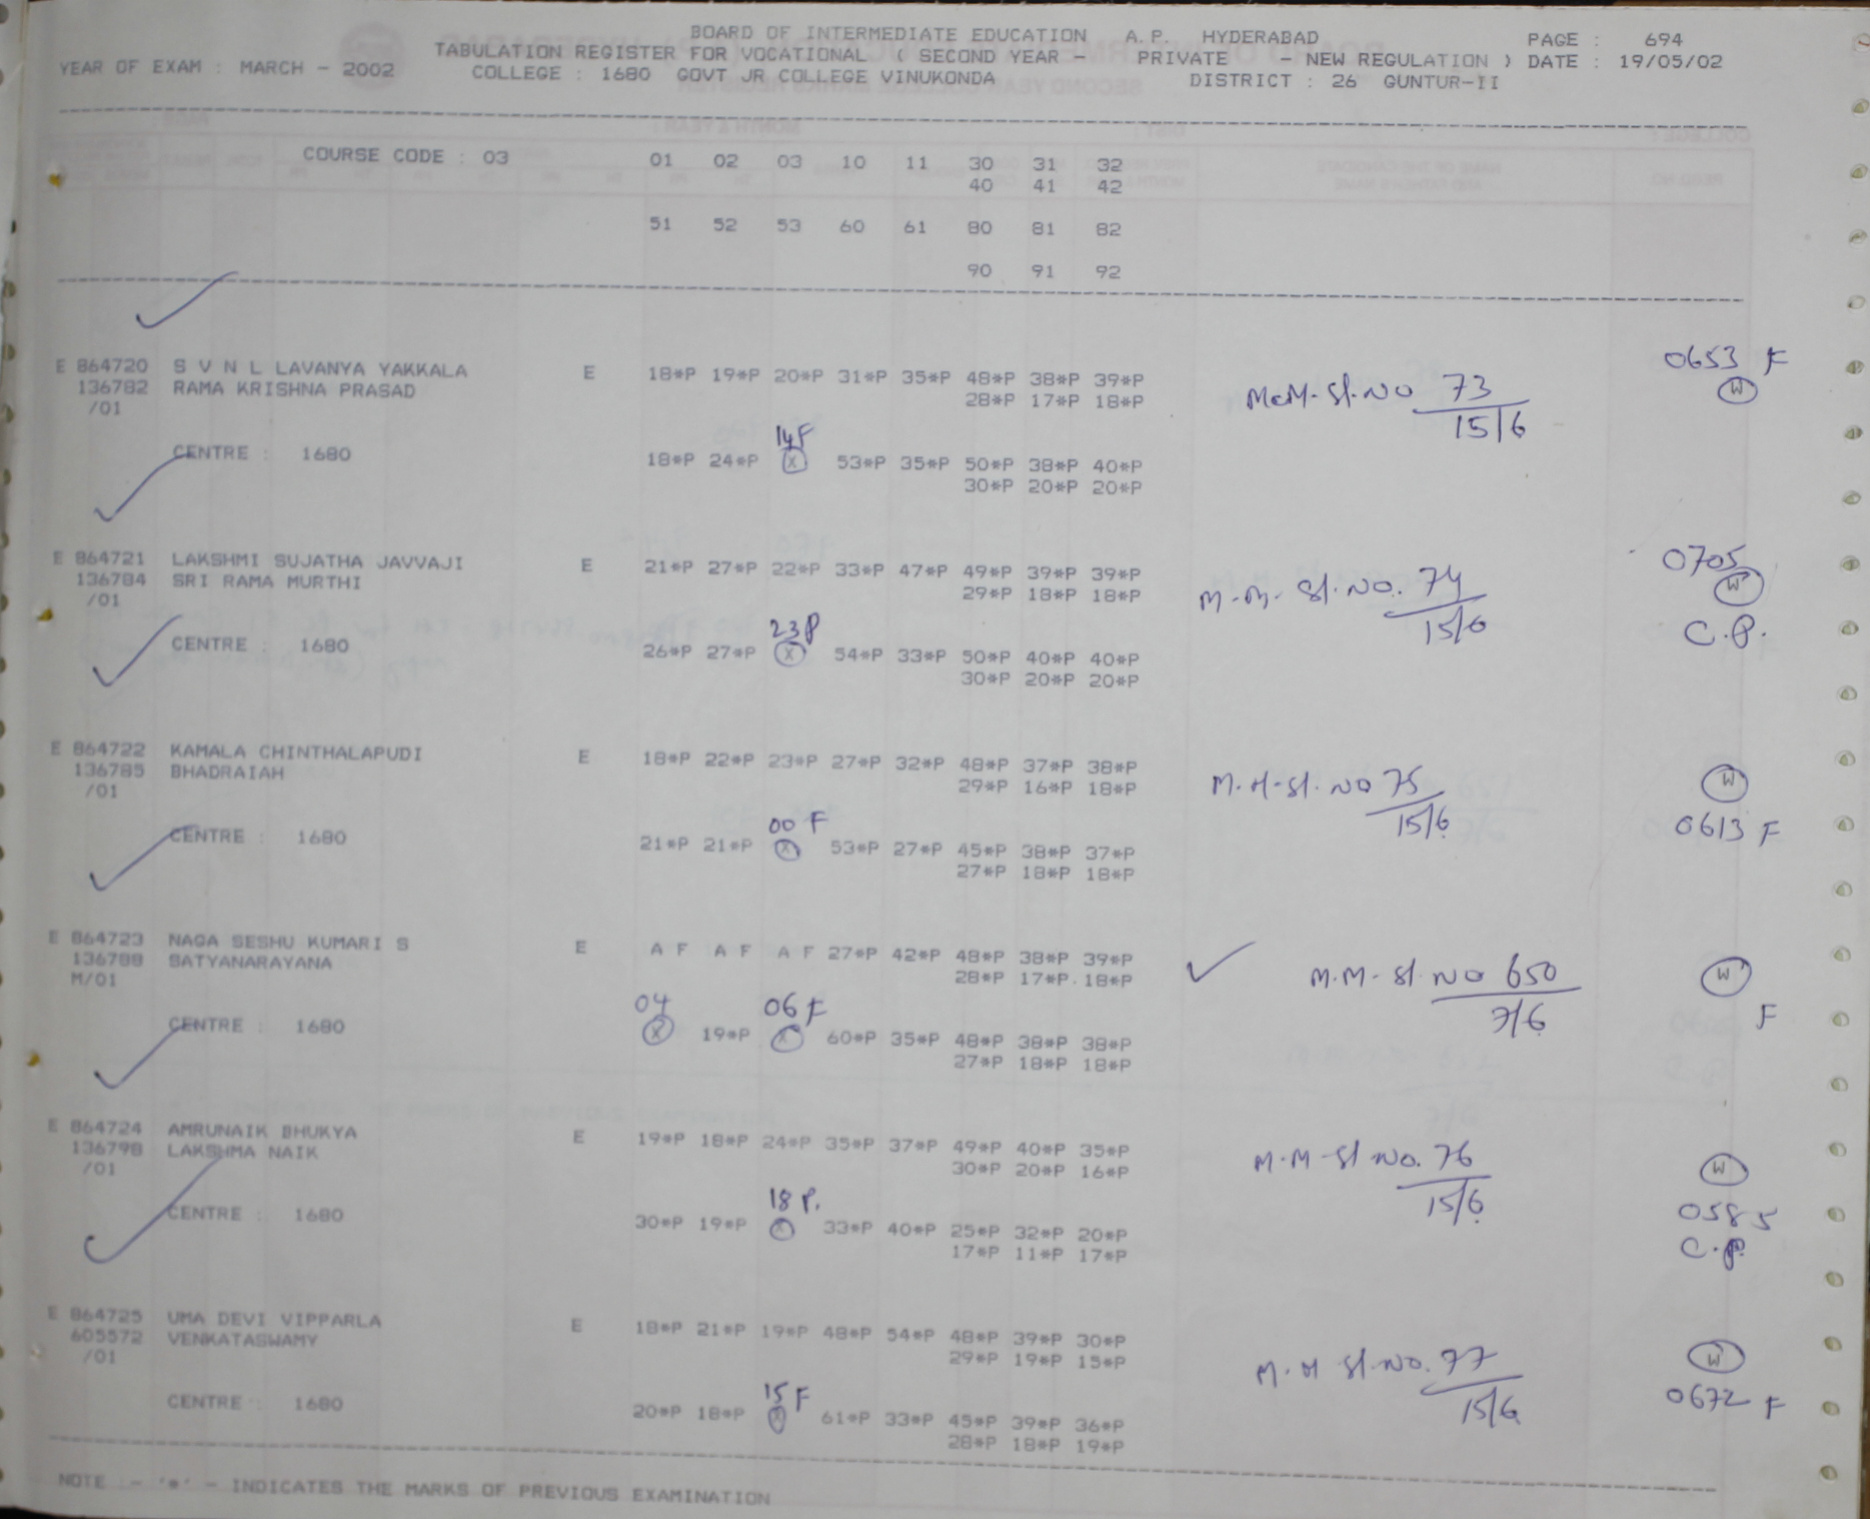 BOARD OF INTERMEDIATE EDUCATION A.P. HYDERABAD PAGE : 694
TABULATION REGISTER FOR VOCATIONAL ( SECOND YEAR - PRIVATE - NEW REGULATION ) DATE : 19/05/02
YEAR OF EXAM : MARCH - 2002 COLLEGE : 1680 GOVT JR COLLEGE VINUKONDA DISTRICT : 26 GUNTUR-II
COURSE CODE : 03 01 02 03 10 11 30 31 32
40 41 42
51 52 53 60 61 80 81 82
90 91 92
0653 F
E 864720 S V N L LAVANYA YAKKALA E 18*P 19*P 20*P 31*P 35*P 48*P 38*P 39*P
136782 RAMA KRISHNA PRASAD 28*P 17*P 18*P M.M-Sl.No 73 W
/01 15/6
14F
CENTRE : 1680 18*P 24*P X 53*P 35*P 50*P 38*P 40*P
30*P 20*P 20*P
E 864721 LAKSHMI SUJATHA JAVVAJI E 21*P 27*P 22*P 33*P 47*P 49*P 39*P 39*P 0705
136784 SRI RAMA MURTHI 29*P 18*P 18*P M.M- Sl.No. 74 W
/01 15/6
23P C.P.
CENTRE : 1680 26*P 27*P X 54*P 33*P 50*P 40*P 40*P
30*P 20*P 20*P
E 864722 KAMALA CHINTHALAPUDI E 18*P 22*P 23*P 27*P 32*P 48*P 37*P 38*P
136785 BHADRAIAH 29*P 16*P 18*P M.M-Sl. No 75 W
/01 15/6
00 F 0613 F
CENTRE : 1680 21*P 21*P X 53*P 27*P 45*P 38*P 37*P
27*P 18*P 18*P
E 864723 NAGA SESHU KUMARI S E A F A F A F 27*P 42*P 48*P 38*P 39*P
136788 SATYANARAYANA 28*P 17*P 18*P M.M- Sl. No 650 W
M/01 7/6
04 06 F F
CENTRE : 1680 X 19*P X 60*P 35*P 48*P 38*P 38*P
27*P 18*P 18*P
E 864724 AMRUNAIK BHUKYA E 19*P 18*P 24*P 35*P 37*P 49*P 40*P 35*P
136798 LAKSHMA NAIK 30*P 20*P 16*P M.M-Sl No. 76 W
/01 15/6
18 P. 0585
CENTRE : 1680 30*P 19*P X 33*P 40*P 25*P 32*P 20*P C.P.
17*P 11*P 17*P
E 864725 UMA DEVI VIPPARLA E 18*P 21*P 19*P 48*P 54*P 48*P 39*P 30*P
605572 VENKATASWAMY 29*P 19*P 15*P M.M Sl.No. 77 W
/01 15/6
15 F 0672 F
CENTRE : 1680 20*P 18*P X 61*P 33*P 45*P 39*P 36*P
28*P 18*P 19*P
NOTE :- '*' - INDICATES THE MARKS OF PREVIOUS EXAMINATION